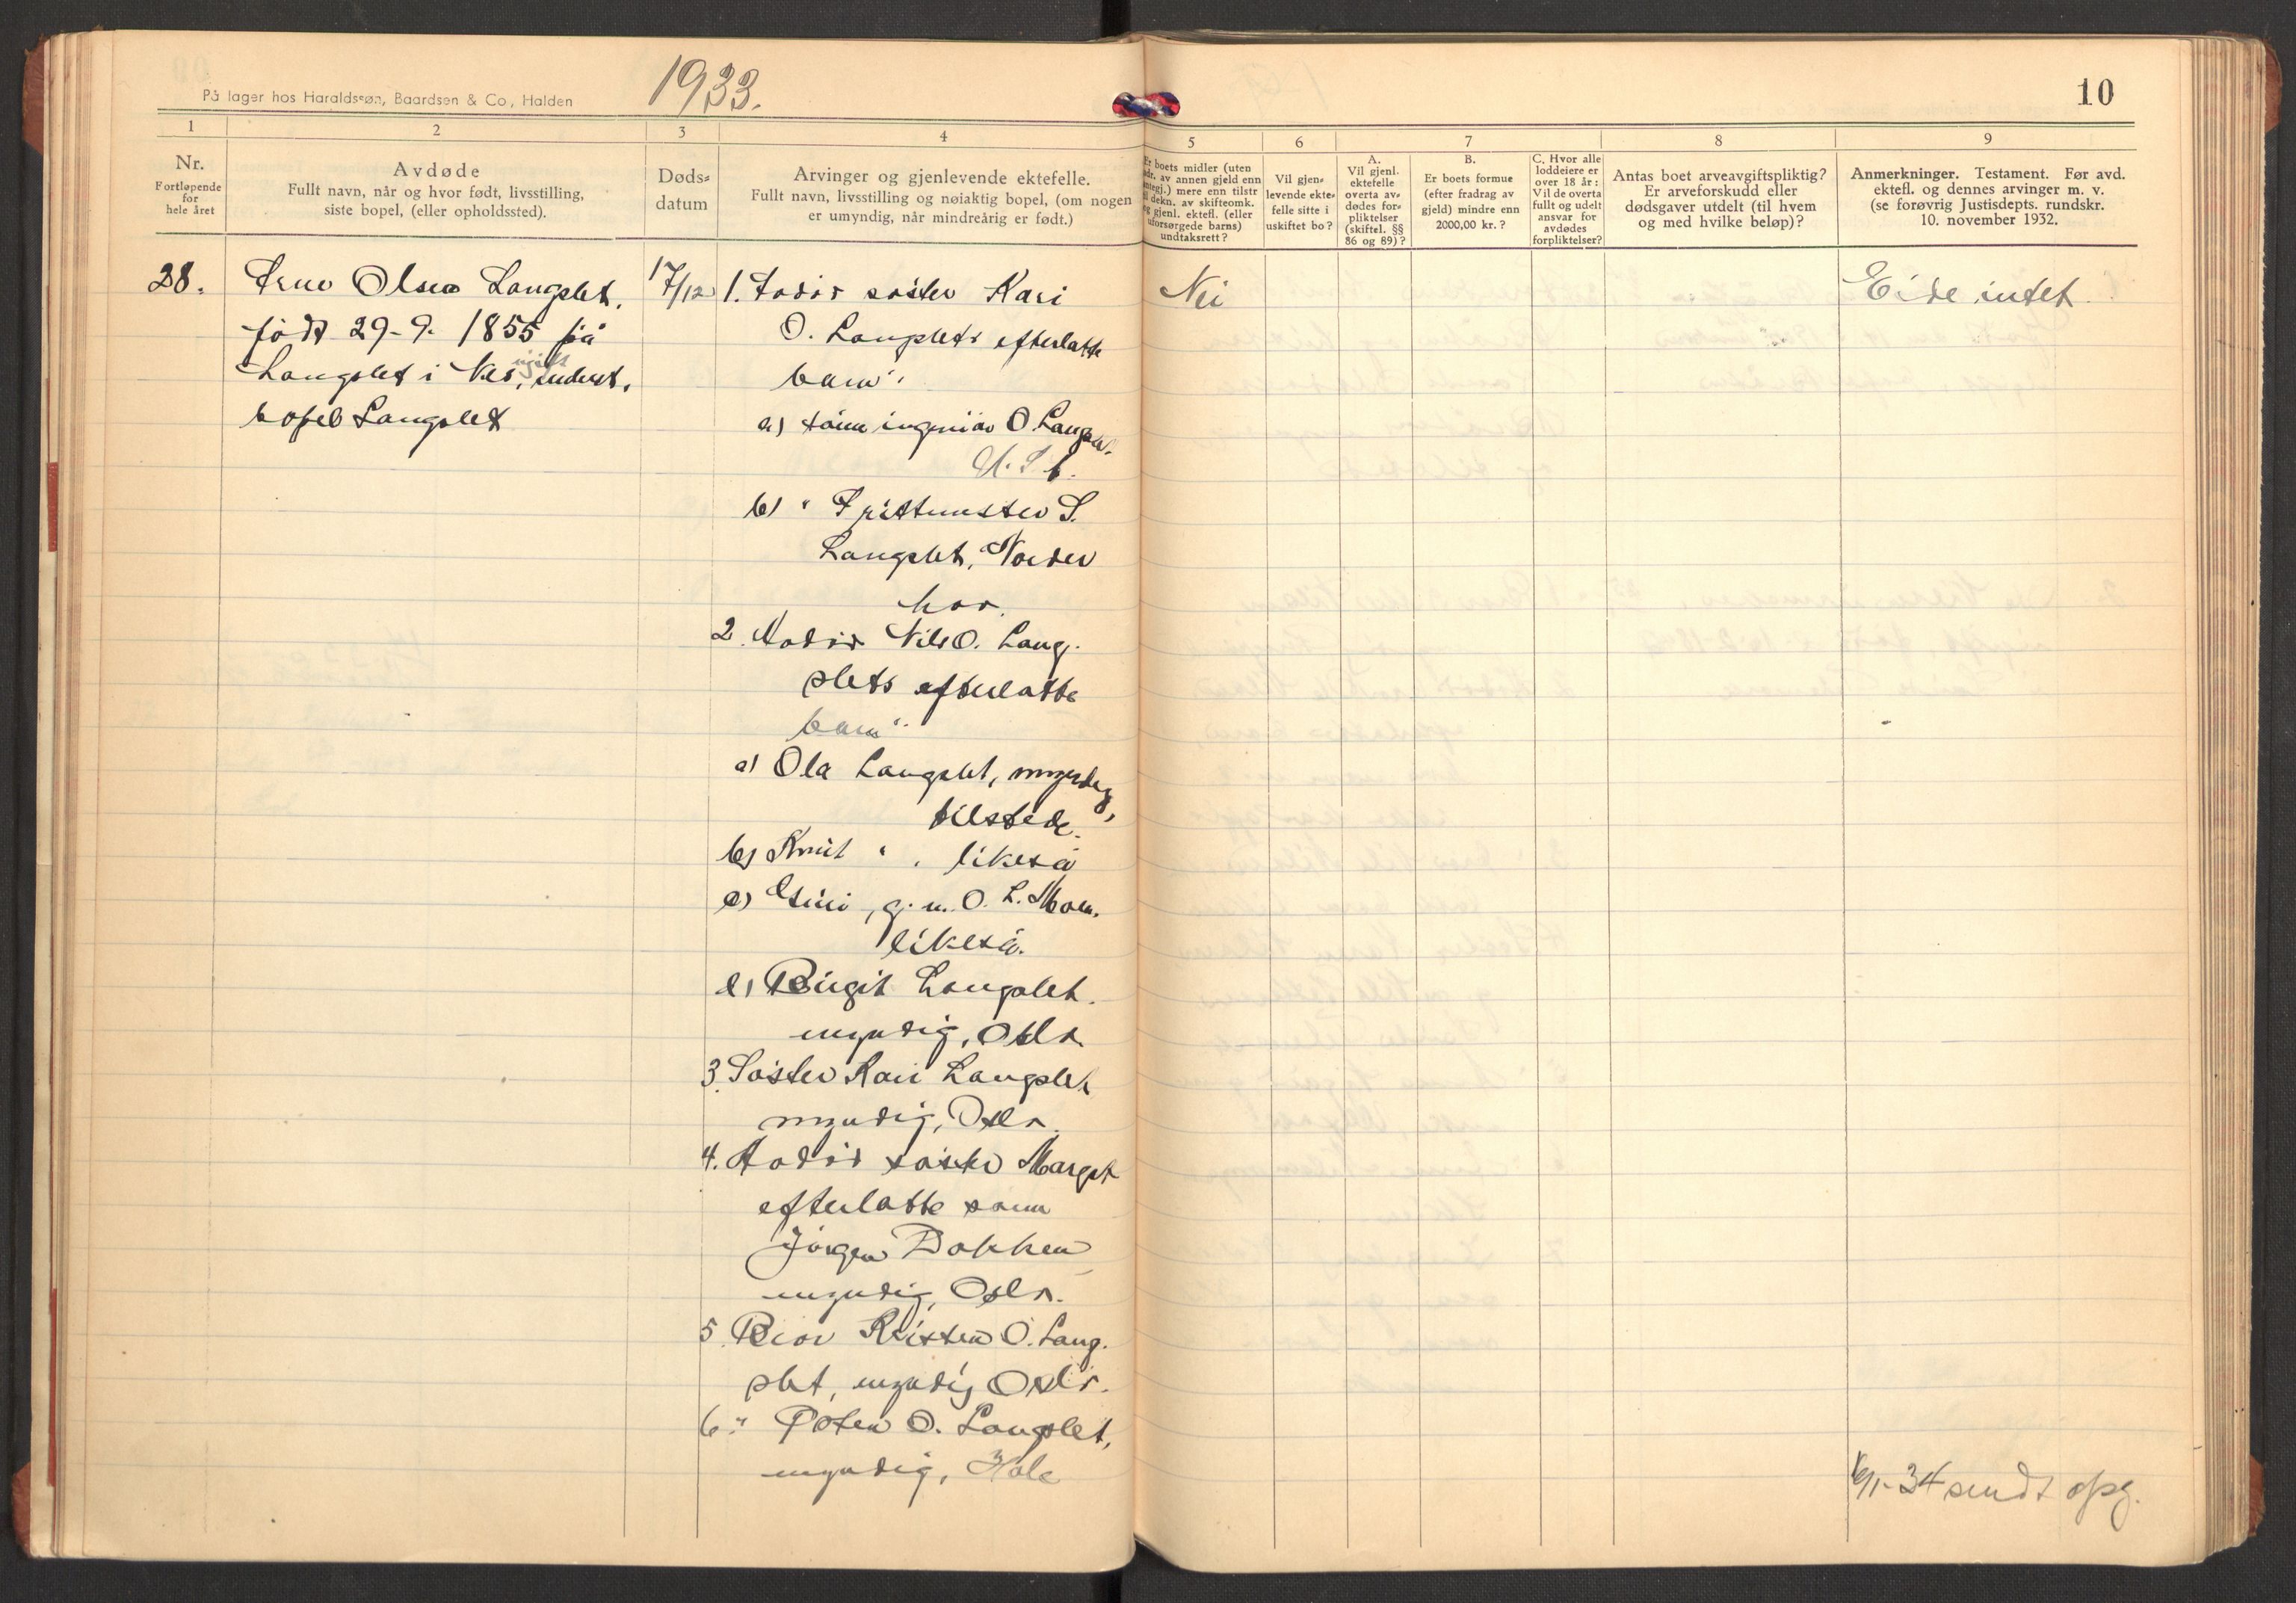 På lager hos Haraldssøn, Baardsen & Co., Halden
1933.
10
1
2
3
4
5
6
7
8
9
Nr.
Fortløpende
for
hele året
Avdøde
Fullt navn, når og hvor født, livsstilling,
siste bopel, (eller opholdssted).
Døds-
datum
Arvinger og gjenlevende ektefelle.
Fullt navn, livsstilling og nøiaktig bopel, (om nogen
er umyndig, når mindreårig er født.)
Er boets midler (uten
fdr. av annen gjeld enn
mtegj.) mere enn tilstr
til dekn. av skifteomk.
og gjenl. ektefl. (eller
uforsørgede barns)
undtaksrett?
Vil gjen-
levende ekte-
felle sitte i
uskiftet bo?
A.
Vil gjenl.
ektefelle
overta av-
dødes for-
pliktelser
(skiftel. §§
86 og 89)?
B.
Er boets formue
(efter fradrag av
gjeld) mindre enn
2000,00 kr.?
C. Hvor alle
loddeiere er
over 18 år:
Vil de overta
fullt og udelt
ansvar for
avdødes
forpliktelser?
Antas boet arveavgiftspliktig?
Er arveforskudd eller
dødsgaver utdelt (til hvem
og med hvilke beløp)?
Anmerkninger. Testament. Før avd.
ektefl. og dennes arvinger m. v.
(se forøvrig Justisdepts. rundskr.
10. november 1932.
28.
Olsen Langslet,
født 29-9- 1855 på
Langslet i Nes, ugift underst.
bopel Langslet
17/12
1. Avdød søster Kari
O. Langslets efterlatte
barn:
a) sønn ingeniør O. Langslet
U. S. A.
b) " S.
Langslet, Norder
hov.
2. Avdød Nils O. Lang-
slets efterlatte
barn:
a) Ola Langslet, myndig,
tilstede.
b) Knut " , likeså
c) Guri, g. m. O. L. Moen,
likeså.
d) Birgit Langslet.
myndig, Oslo.
3. Søster Kari Langslet
myndig, Oslo.
4. Avdød søster Margit
efterlatte sønn
Jørgen Dokken
myndig, Oslo.
5. Bror Kristen O. Lang-
slet, myndig Oslo.
6. " O. Langslet,
myndig, Hole
Nei
Eide intet.
16/1-34 sendt opg.